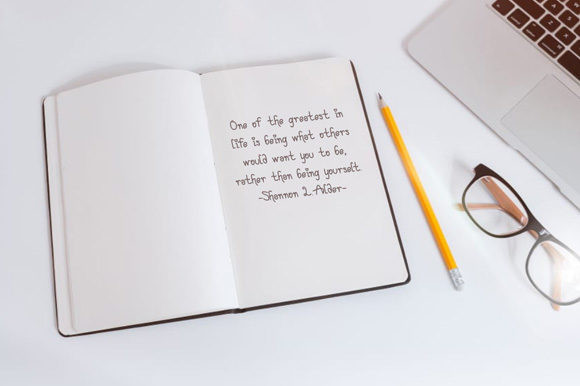 One of the greatest in
life is being what others
would want you to be,
rather than being yourself
-Shannon L Alder-